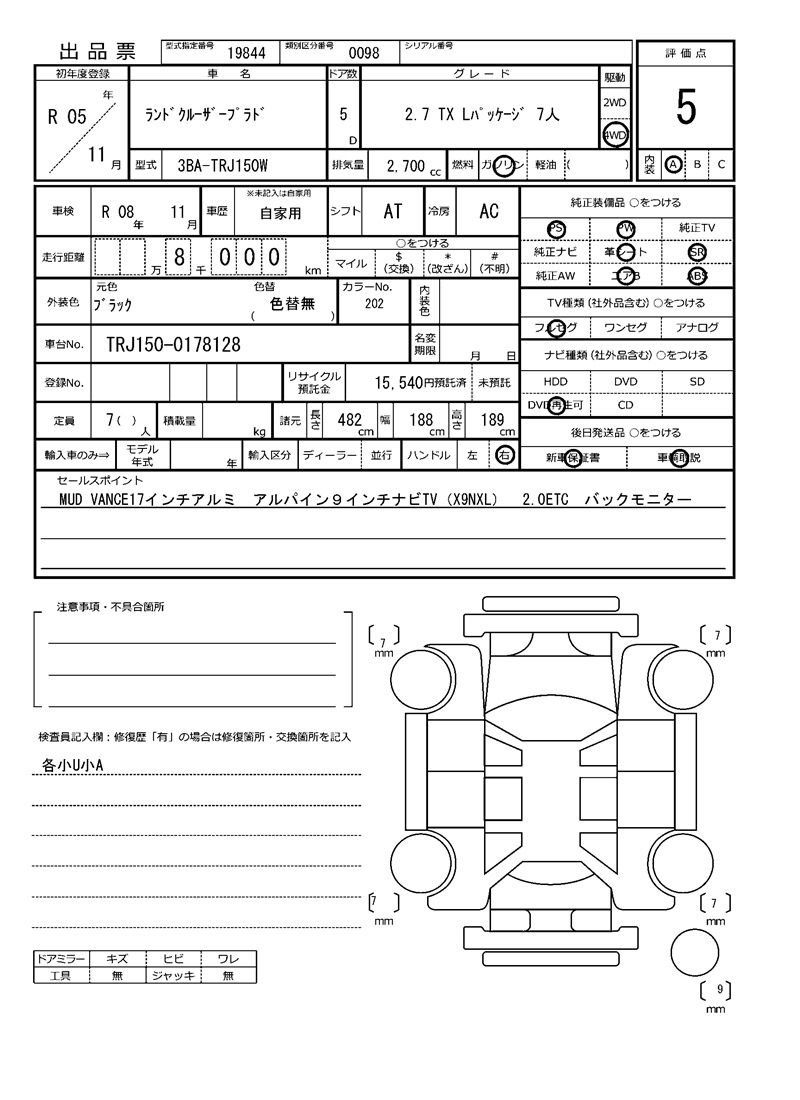 出品票
型式指定番号 19844 類別区分番号 0098 シリアル番号
評価点
初年度登録 車名 ドア数 グレード 駆動
R 05 年 11 月
ﾗﾝﾄﾞｸﾙｰｻﾞｰﾌﾟﾗﾄﾞ 5 D 2.7 TX Lﾊﾟｯｹｰｼﾞ 7人 2WD 4WD
5
型式 3BA-TRJ150W 排気量 2,700 cc 燃料 ガソリン 軽油 ( )
内装 A B C
車検 R 08 年 11 月 車歴 ※未記入は自家用 自家用 シフト AT 冷房 AC
純正装備品 ○をつける
PS PW 純正TV
走行距離 万 8 千 0 0 0 km ○をつける
マイル $(交換) *(改ざん) #(不明)
純正ナビ 革シート SR
純正AW エアB ABS
外装色 元色 ブラック 色替 ( 色替無 ) カラーNo. 202 内装色
TV種類(社外品含む)○をつける
フルセグ ワンセグ アナログ
車台No. TRJ150-0178128 名変期限 月 日
ナビ種類(社外品含む)○をつける
登録No. リサイクル預託金 15,540円預託済 未預託
HDD DVD SD
DVD再生可 CD
定員 7( )人 積載量 kg 諸元 長さ 482 cm 幅 188 cm 高さ 189 cm
後日発送品 ○をつける
輸入車のみ⇒ モデル年式 年 輸入区分 ディーラー 並行 ハンドル 左 右
新車保証書 車輌取説
セールスポイント
MUD VANCE17インチアルミ アルパイン9インチナビTV(X9NXL) 2.0ETC バックモニター
注意事項・不具合箇所
7 mm
7 mm
検査員記入欄：修復歴「有」の場合は修復箇所・交換箇所を記入
各小U小A
7 mm
7 mm
ドアミラー キズ ヒビ ワレ
工具 無 ジャッキ 無
9 mm